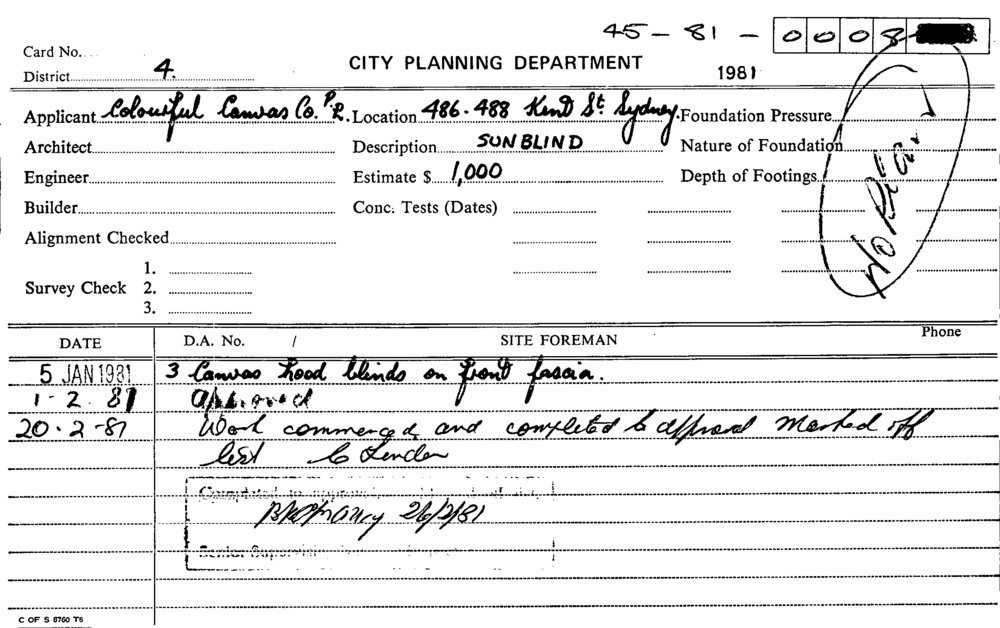 45 - 81 - 0008
Card No....
District 4.
CITY PLANNING DEPARTMENT
1981
Applicant Colourful Canvas Co. P. L. Location 486-488 Kent St. Sydney. Foundation Pressure
Architect Description SUNBLIND Nature of Foundation
Engineer Estimate $ 1,000 Depth of Footings
Builder Conc. Tests (Dates)
Alignment Checked
1.
Survey Check 2.
3.
No Plan
DATE D.A. No. / SITE FOREMAN Phone
5 JAN 1981 3 Canvas hood blinds on front fascia.
1-2.81 Approved
20.2-81 Work commenced and completed to approval Marked off
list
Completed to approval
26/2/81
Senior Supervising
C OF S 8760 T6